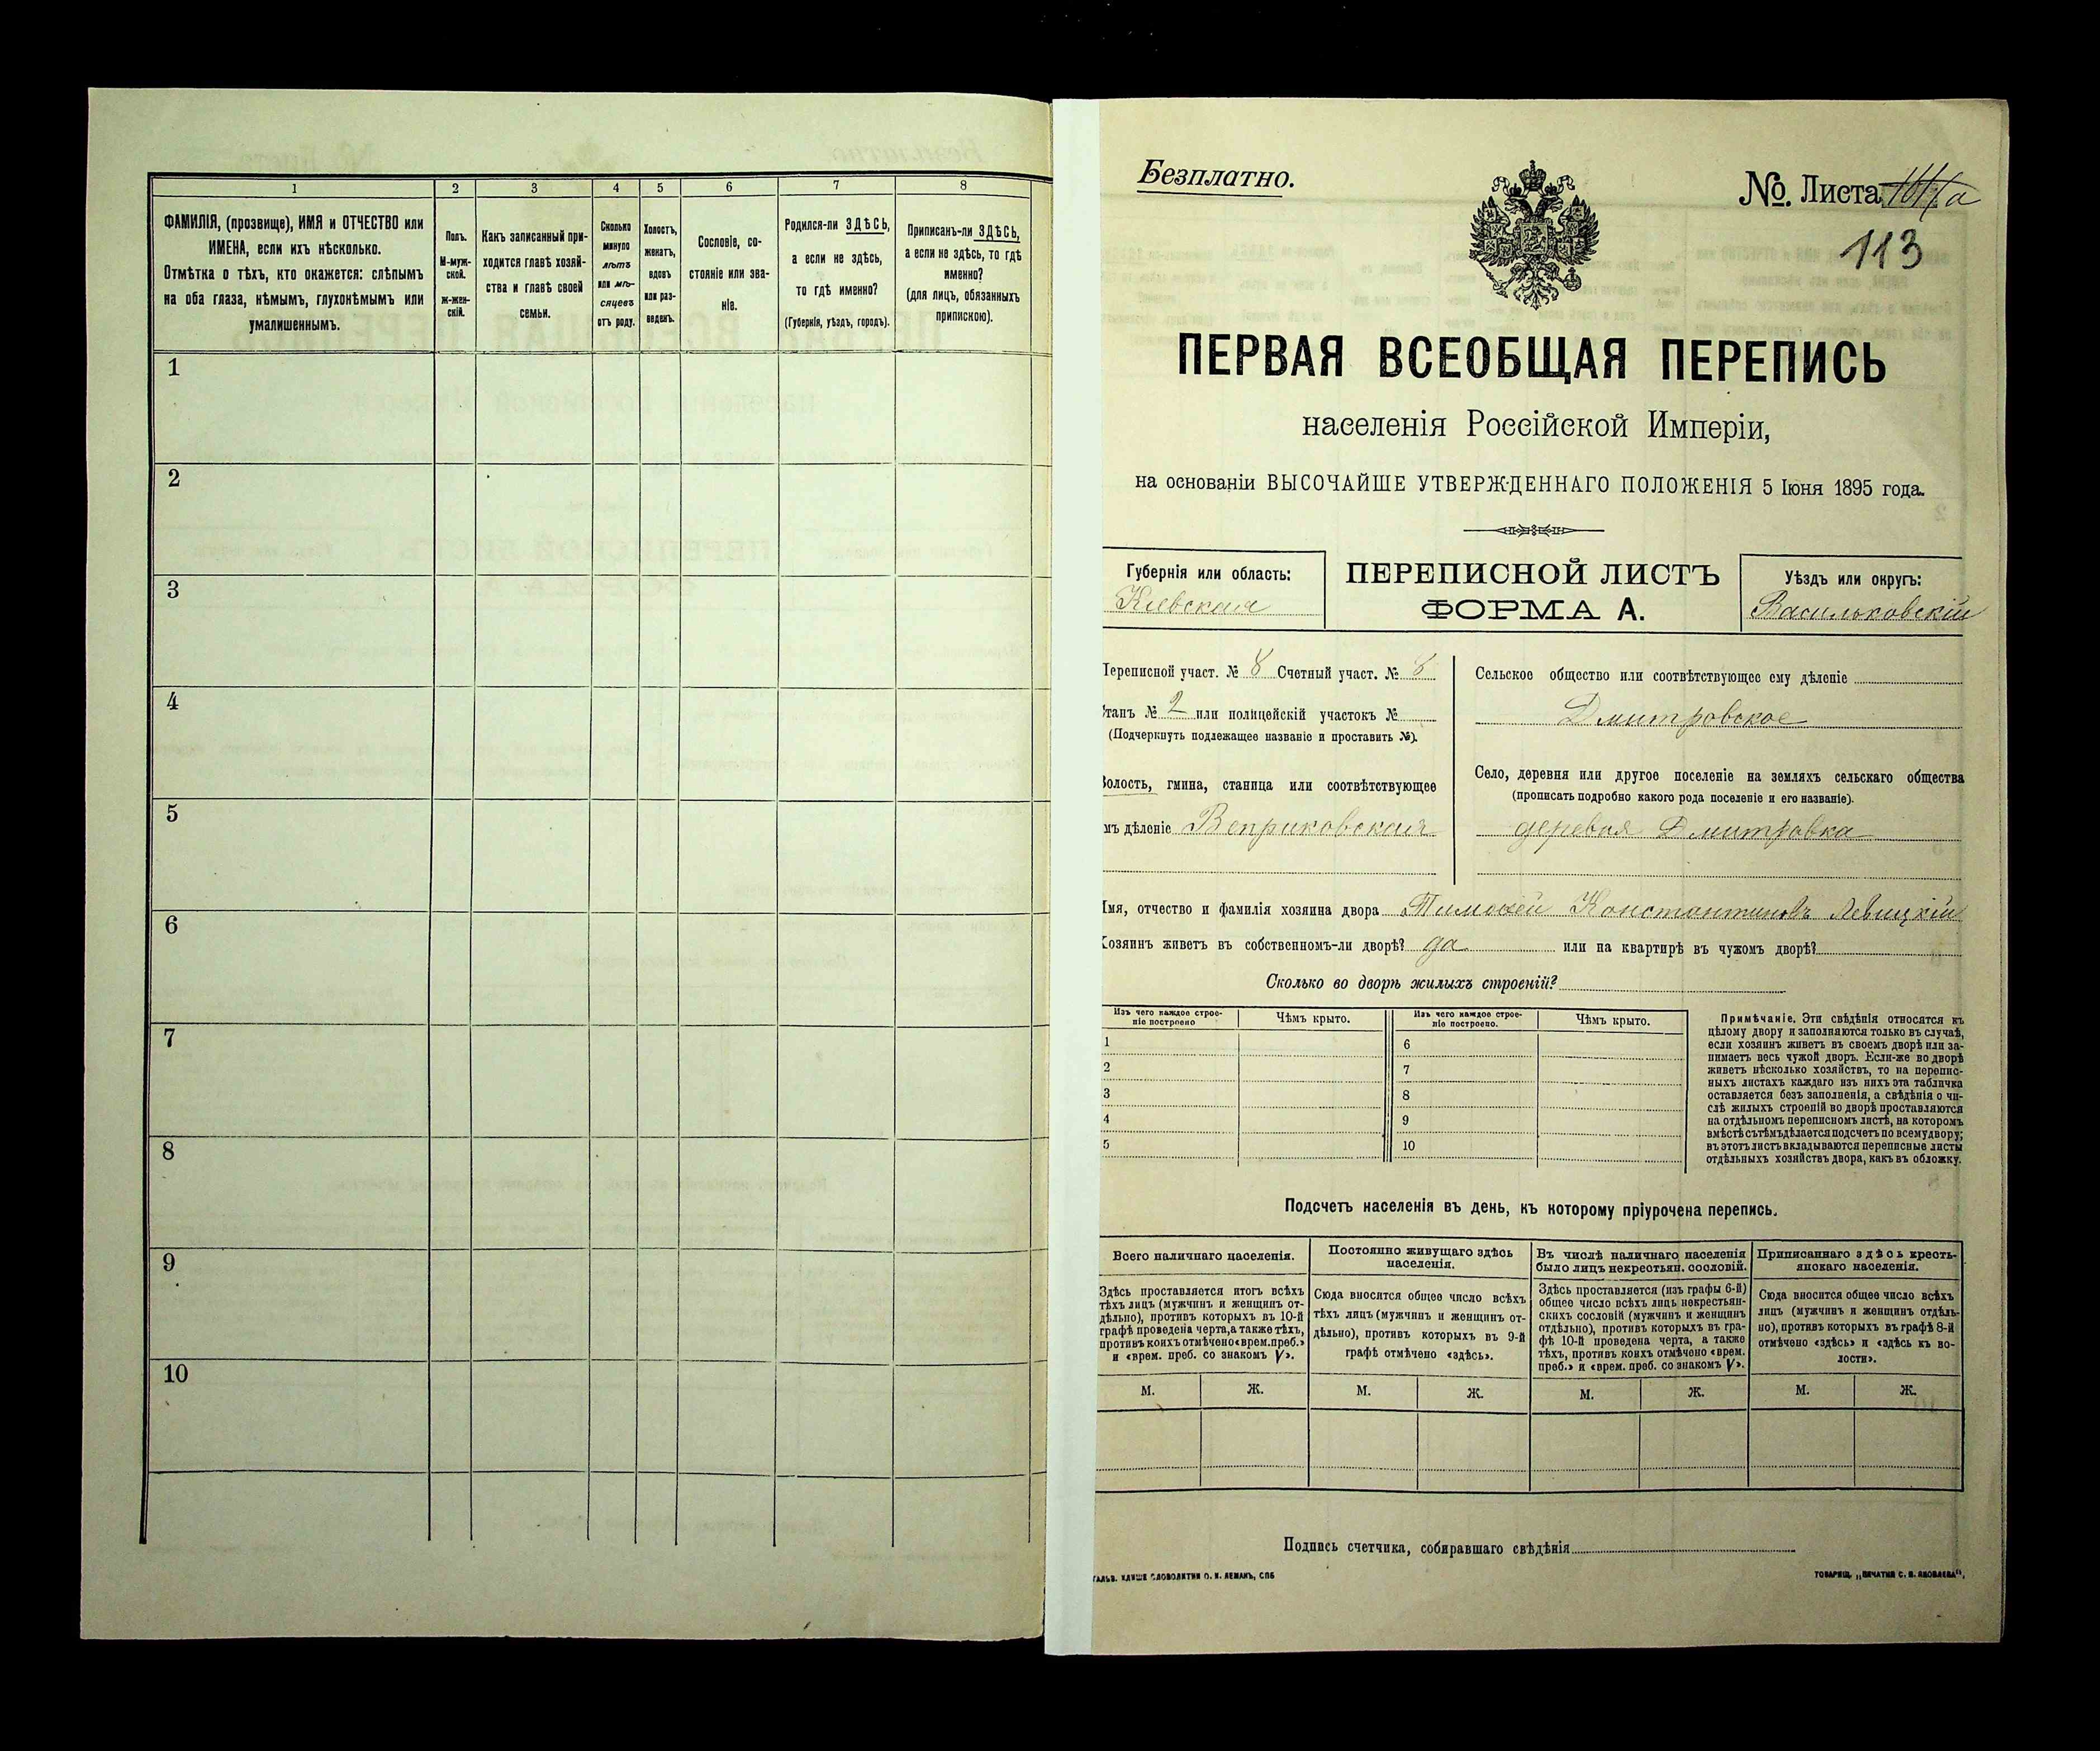 1 2 3 4 5 6 7 8
ФАМИЛІЯ, (прозвище), ИМЯ и ОТЧЕСТВО или
ИМЕНА, если ихъ нѣсколько.
Отмѣтка о тѣхъ, кто окажется: слѣпымъ
на оба глаза, нѣмымъ, глухонѣмымъ или
умалишеннымъ.
Полъ.
М-муж-
ской.
ж-жен-
скій.
Какъ записанный при-
ходится главѣ хозяй-
ства и главѣ своей
семьи.
Сколько
минуло
лѣтъ
или мѣ-
сяцевъ
отъ роду.
Холостъ,
женатъ,
вдовъ
или раз-
веденъ.
Сословіе, со-
стояніе или зва-
ніе.
Родился-ли ЗДѢСЬ,
а если не здѣсь,
то гдѣ именно?
(Губернія, уѣздъ, городъ).
Приписанъ-ли ЗДѢСЬ,
а если не здѣсь, то гдѣ
именно?
(для лицъ, обязанныхъ
припискою).
1
2
3
4
5
6
7
8
9
10
Безплатно.
№. Листа
113
ПЕРВАЯ ВСЕОБЩАЯ ПЕРЕПИСЬ
населенія Россійской Имперіи,
на основаніи ВЫСОЧАЙШЕ УТВЕРЖДЕННАГО ПОЛОЖЕНІЯ 5 Іюня 1895 года.
Губернія или область:
Кіевская
ПЕРЕПИСНОЙ ЛИСТЪ
ФОРМА А.
Уѣздъ или округъ:
Васильковскій
Переписной участ. № 8 Счетный участ. № 8
Станъ № 2 или полицейскій участокъ №
(Подчеркнуть подлежащее названіе и проставить №).
Волость, гмина, станица или соотвѣтствующее
мъ дѣленіе Веприковская
Сельское общество или соотвѣтствующее ему дѣленіе
Дмитровское
Село, деревня или другое поселеніе на земляхъ сельскаго общества
(прописать подробно какого рода поселеніе и его названіе).
деревня Дмитровка
Имя, отчество и фамилія хозяина двора Тимофей Константиновъ Левицкій
Хозяинъ живетъ въ собственномъ-ли дворѣ? да или на квартирѣ въ чужомъ дворѣ?
Сколько во дворѣ жилыхъ строеній?
Изъ чего каждое строе-
ніе построено
Чѣмъ крыто.
Изъ чего каждое строе-
ніе построено.
Чѣмъ крыто.
1 6
2 7
3 8
4 9
5 10
Примѣчаніе. Эти свѣдѣнія относятся къ
цѣлому двору и заполняются только въ случаѣ,
если хозяинъ живетъ въ своемъ дворѣ или за-
нимаетъ весь чужой дворъ. Если-же во дворѣ
живетъ нѣсколько хозяйствъ, то на перепис-
ныхъ листахъ каждаго изъ нихъ эта табличка
оставляется безъ заполненія, а свѣдѣнія о чи-
слѣ жилыхъ строеній во дворѣ проставляются
на отдѣльномъ переписномъ листѣ, на которомъ
вмѣстѣ съ тѣмъ дѣлается подсчетъ по всему двору;
въ этотъ листъ вкладываются переписные листы
отдѣльныхъ хозяйствъ двора, какъ въ обложку.
Подсчетъ населенія въ день, къ которому пріурочена перепись.
Всего наличнаго населенія.
Здѣсь проставляется итогъ всѣхъ
тѣхъ лицъ (мужчинъ и женщинъ от-
дѣльно), противъ которыхъ въ 10-й
графѣ проведена черта, а также тѣхъ,
противъ коихъ отмѣчено «врем. преб.»
и «врем. преб. со знакомъ V».
Постоянно живущаго здѣсь
населенія.
Сюда вносится общее число всѣхъ
тѣхъ лицъ (мужчинъ и женщинъ от-
дѣльно), противъ которыхъ въ 9-й
графѣ отмѣчено «здѣсь».
Въ числѣ наличнаго населенія
было лицъ некрестьян. сословій.
Здѣсь проставляется (изъ графы 6-й)
общее число всѣхъ лицъ некрестьян-
скихъ сословій (мужчинъ и женщинъ
отдѣльно), противъ которыхъ въ гра-
фѣ 10-й проведена черта, а также
тѣхъ, противъ коихъ отмѣчено «врем.
преб.» и «врем. преб. со знакомъ V».
Приписаннаго здѣсь кресть-
янскаго населенія.
Сюда вносится общее число всѣхъ
лицъ (мужчинъ и женщинъ отдѣль-
но), противъ которыхъ въ графѣ 8-й
отмѣчено «здѣсь» и «здѣсь къ во-
лости».
М. Ж. М. Ж. М. Ж. М. Ж.
Подпись счетчика, собиравшаго свѣдѣнія
СЛОВОЛИТНИ О. И. ЛЕМАНЪ, СПБ
ТОВАРИЩ. „ПЕЧАТНЯ С. П. ЯКОВЛЕВА“,